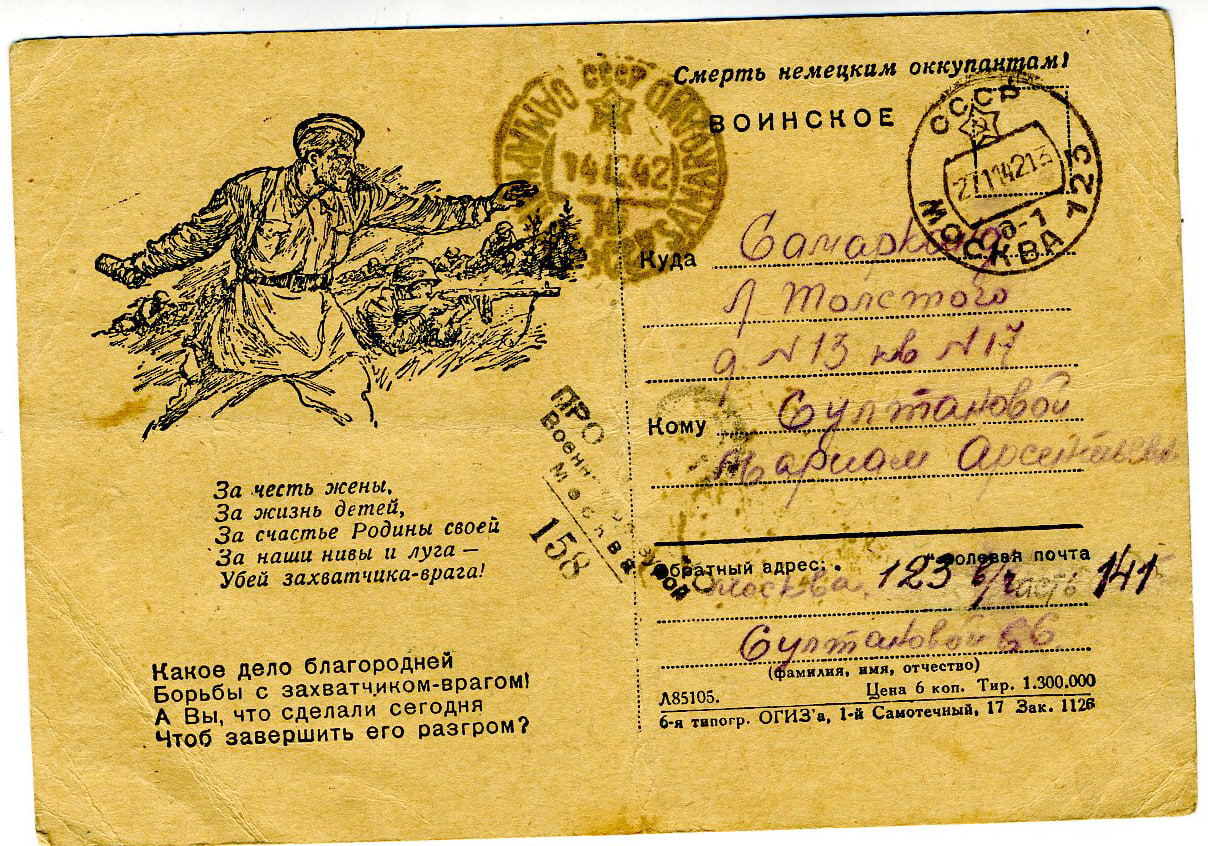 Смерть немецким оккупантам!
ВОИНСКОЕ
СССР
МОСКВА 123
СССР
SAMARKAND
Куда Самарканд
Л Толстого
д. N 13 кв N 17
Кому Султановой
Мариам
ПРО
Москва
158
За честь жены,
За жизнь детей,
За счастье Родины своей
За наши нивы и луга —
Убей захватчика-врага!
Какое дело благородней
Борьбы с захватчиком-врагом!
А Вы, что сделали сегодня
Чтоб завершить его разгром?
Обратный адрес: полевая почта
Москва 123 часть 141
Султановой
(фамилия, имя, отчество)
Л85105. Цена 6 коп. Тир. 1.300,000
6-я типогр. ОГИЗ'а, 1-й Самотечный, 17 Зак. 1126